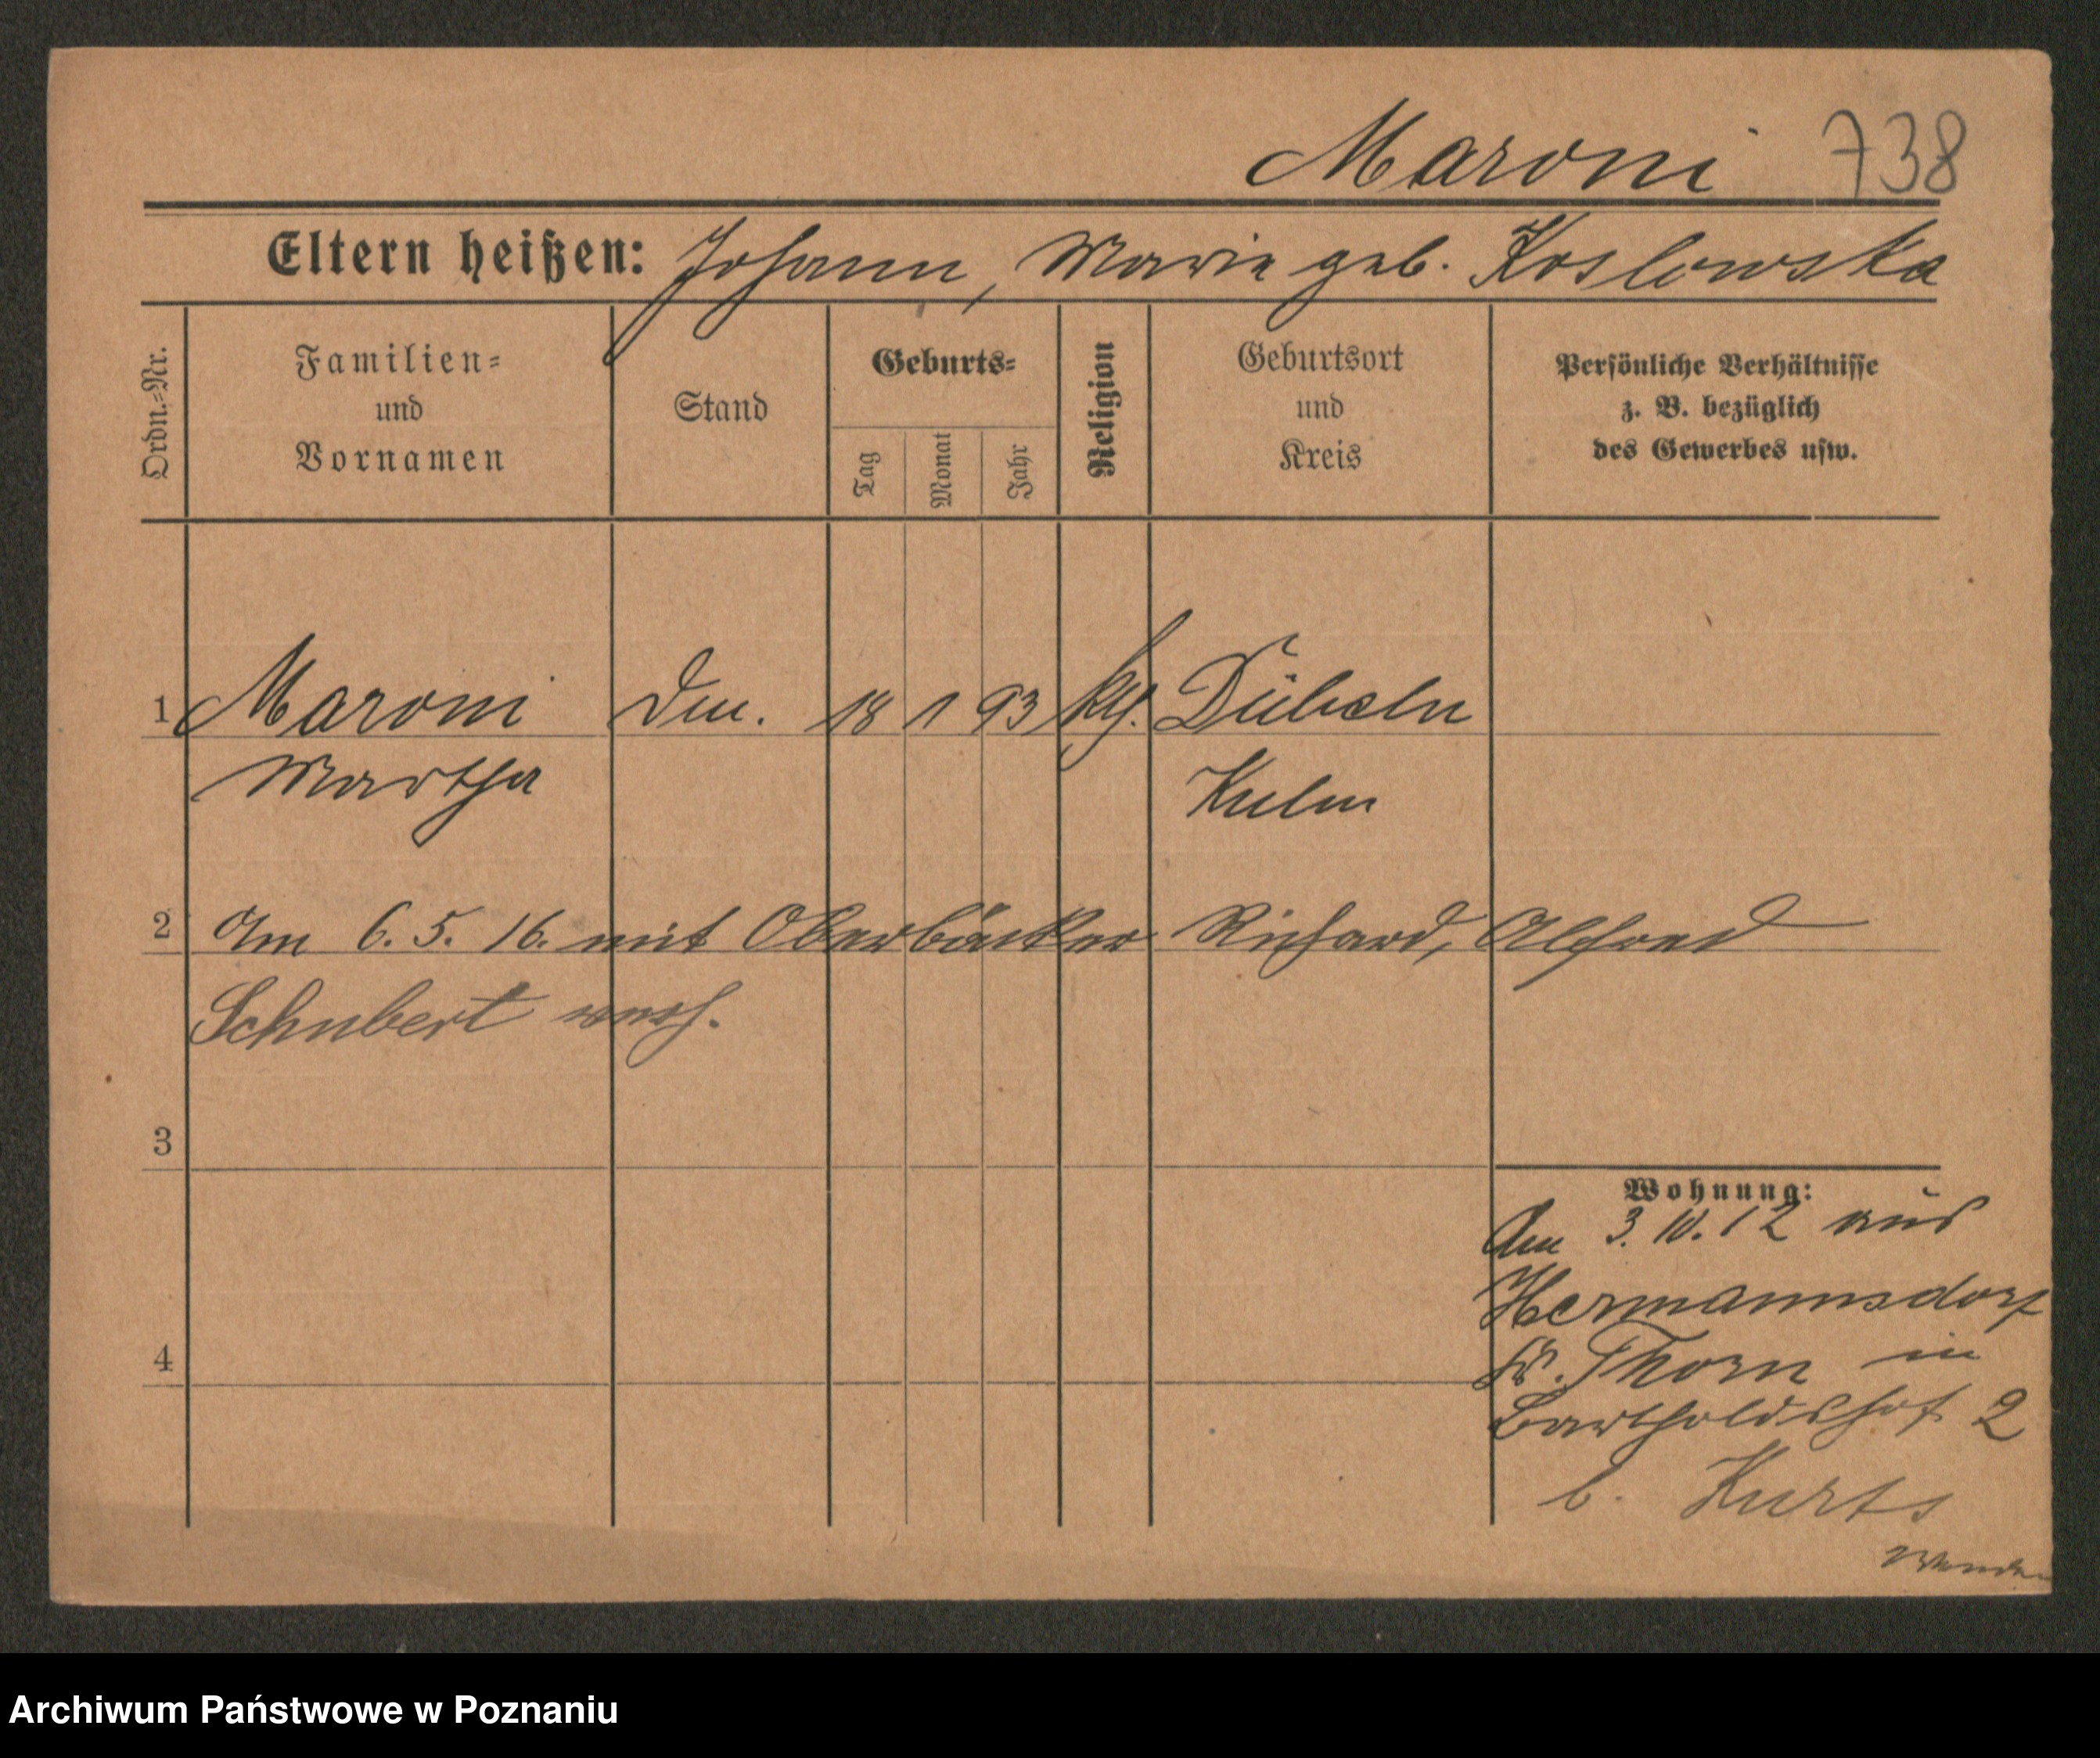 Maroni 738
Eltern heißen: Johann, Marie geb. Koslowska
Ordn.-Nr.
Familien-
und
Vornamen
Stand
Geburts-
Tag
Monat
Jahr
Religion
Geburtsort
und
Kreis
Persönliche Verhältnisse
z. B. bezüglich
des Gewerbes usw.
1 Maroni 18 1 93 kth. Dübeln
Martha Kulm
2 Am 6. 5. 16. mit Oberbäcker Richard, Alfred
Schubert verh.
3
Wohnung:
Am 3. 10. 12 aus
Hermannsdorf
4
Kr. Thorn in
Bartholdshof 2
b. Kurts
Wenden
Archiwum Państwowe w Poznaniu